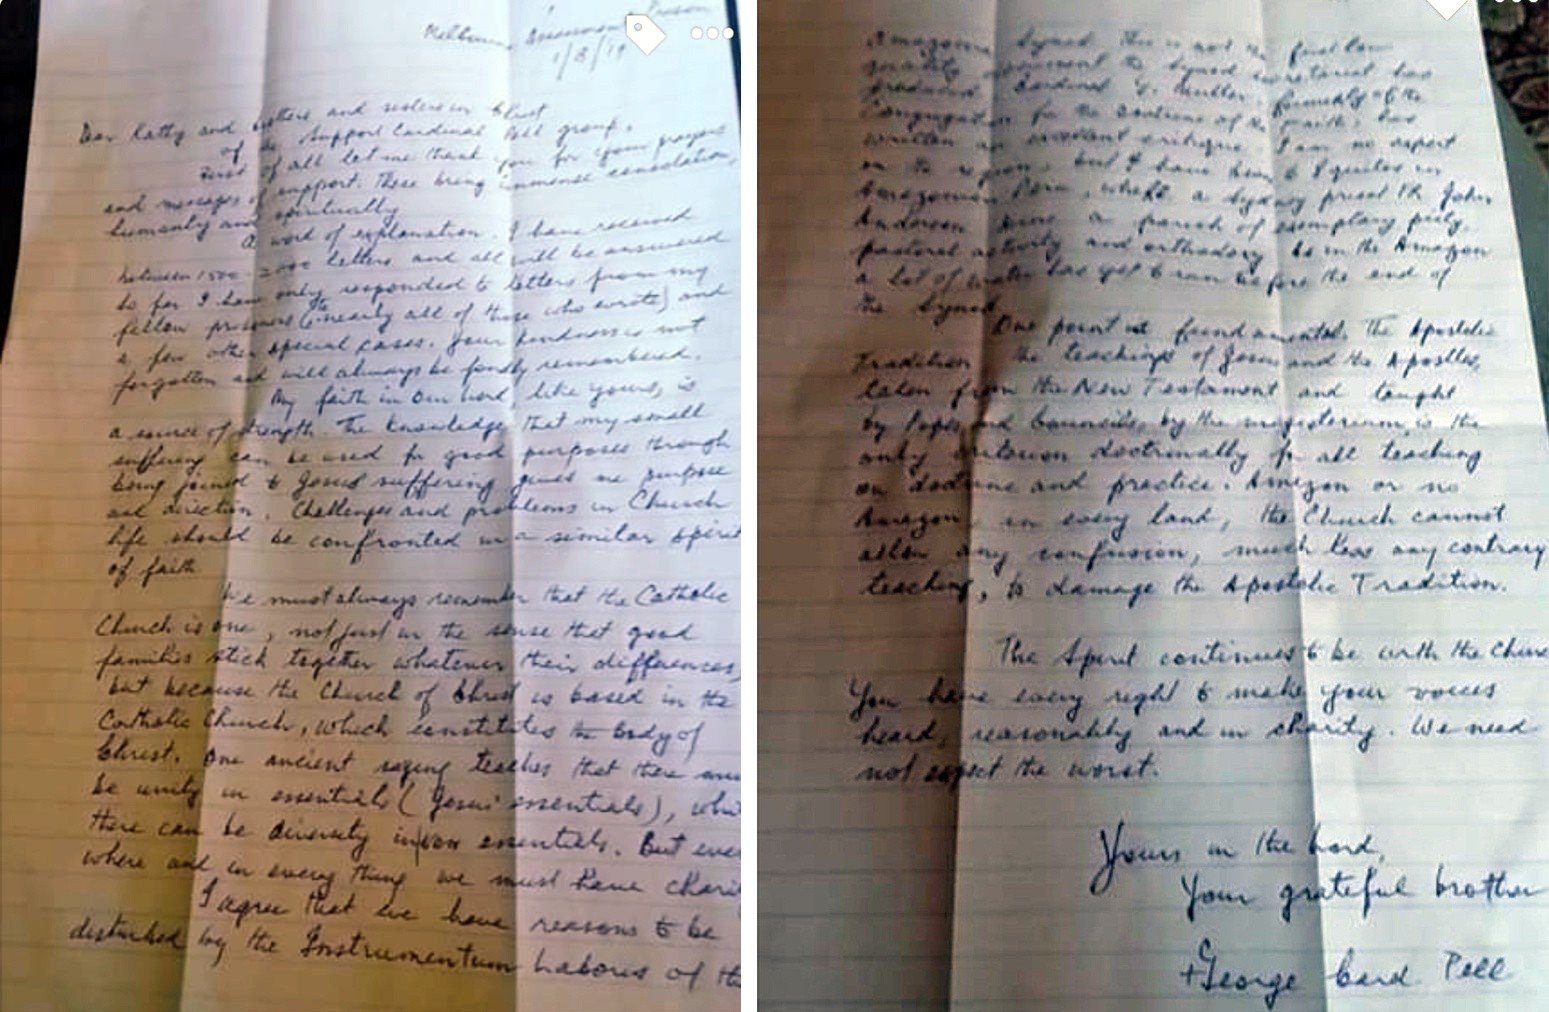 Melbourne Assessment Prison
1/8/19
Dear Kathy and brothers and sisters in Christ
of the Support Cardinal Pell group.
First of all let me thank you for your prayers
and messages of support. These bring immense consolation,
humanly and spiritually
A word of explanation. I have received
between 1500-2000 letters and all will be answered
So far I have only responded to letters from my
fellow prisoners (to nearly all of those who wrote) and
a few other special cases. Your kindness is not
forgotten and will always be fondly remembered.
My faith in Our Lord, like yours, is
a source of strength. The knowledge that my small
suffering can be used for good purposes through
being joined to Jesus' suffering gives me purpose
and direction. Challenges and problems in Church
life should be confronted in a similar spirit
of faith
We must always remember that the Catholic
Church is one, not just in the sense that good
families stick together whatever their differences,
but because the Church of Christ is based in the
Catholic Church, which constitutes the body of
Christ. One ancient saying teaches that there mus
be unity in essentials (Jesus' essentials), whi
there can be diversity in non essentials. But ever
where and in every thing we must have chari
I agree that we have reasons to be
disturbed by the Instrumentum Laboris of the
Amazonian Synod. This is not the first low
quality document the Synod secretariat has
produced. Cardinal G. Muller, formerly of the
Congregation for the Doctrine of the Faith, has
written an excellent critique. I am no expert
on the region, but I have been to Iquitos in
Amazonian Peru, where a Sydney priest Fr. John
Anderson runs a parish of exemplary piety,
pastoral activity and orthodoxy. As in the Amazon
a lot of water has yet to run before the end of
the Synod.
One point is fundamental. The Apostolic
Tradition, the teachings of Jesus and the Apostles,
taken from the New Testament and taught
by Popes and Councils, by the magisterium, is the
only criterion doctrinally for all teaching
on doctrine and practice. Amazon or no
Amazon, in every land, the Church cannot
allow any confusion, much less any contrary
teaching, to damage the Apostolic Tradition.
The Spirit continues to be with the Churc
You have every right to make your voices
heard, reasonably and in charity. We need
not expect the worst.
Yours in the Lord,
Your grateful brother
+George Card Pell